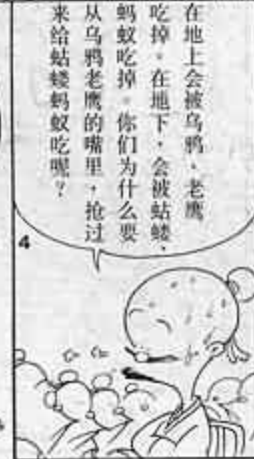 在地上会被乌鸦、老鹰
吃掉。在地下，会被蛄蝼、
蚂蚁吃掉。你们为什么要
从乌鸦老鹰的嘴里，抢过
来给蛄蝼蚂蚁吃呢？
4